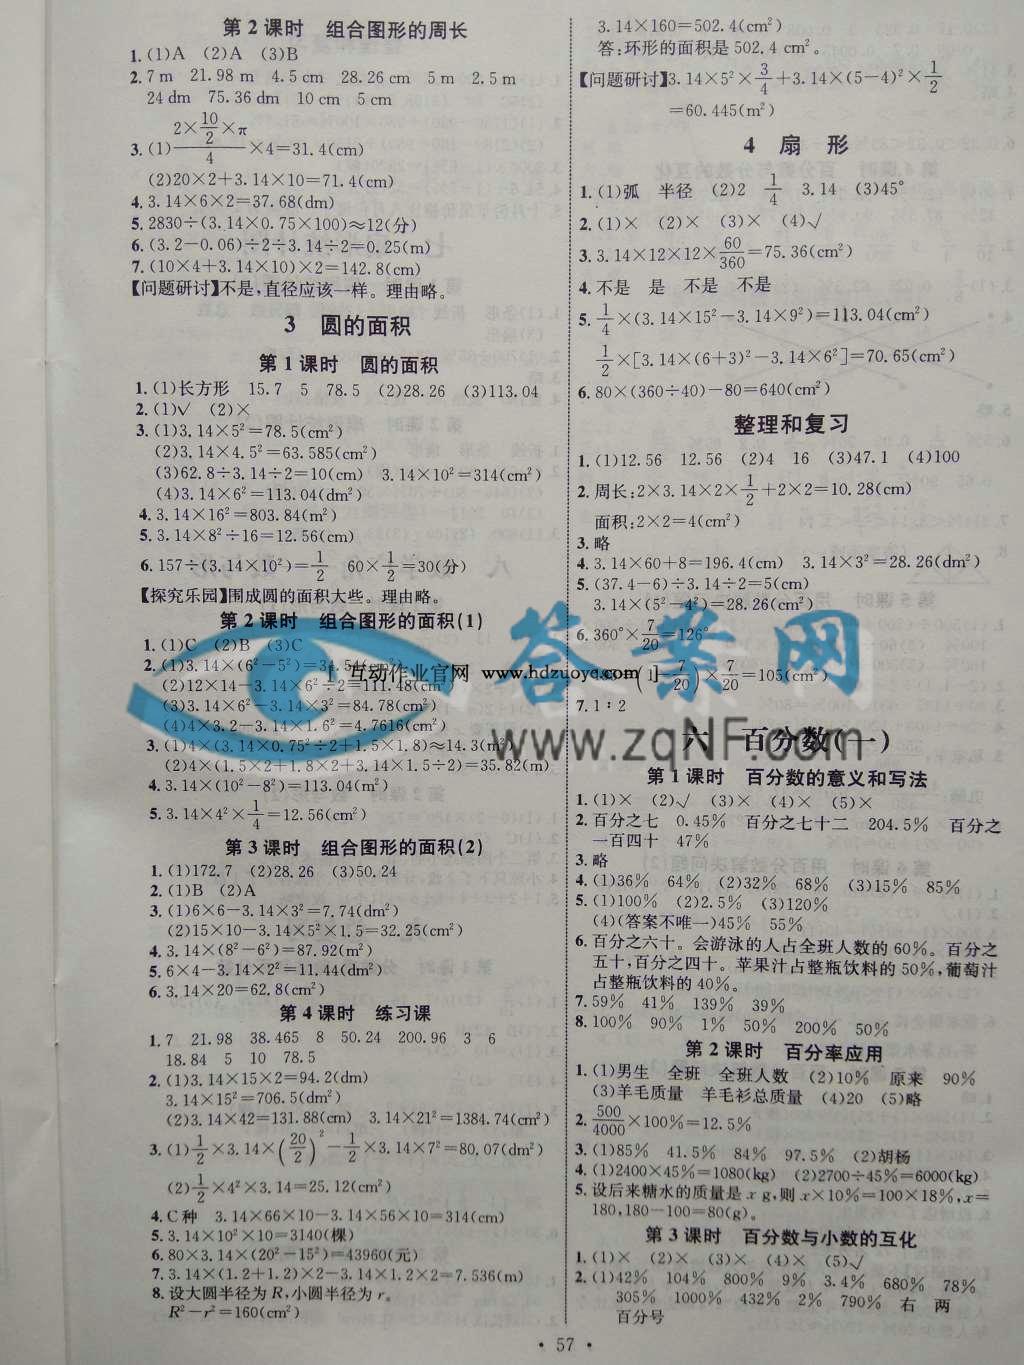 第2课时 组合图形的周长
1.(1)A (2)A (3)B
2.7 m 21.98 m 4.5 cm 28.26 cm 5 m 2.5 m
24 dm 75.36 dm 10 cm 5 cm
3.(1)(2×10/2×π)/4×4=31.4(cm)
(2)20×2+3.14×10=71.4(cm)
4.3.14×6×2=37.68(dm)
5.2830÷(3.14×0.75×100)≈12(分)
6.(3.2-0.06)÷2÷3.14÷2=0.25(m)
7.(10×4+3.14×10)×2=142.8(cm)
【问题研讨】不是,直径应该一样。理由略。
3 圆的面积
第1课时 圆的面积
1.(1)长方形 15.7 5 78.5 (2)28.26 (3)113.04
2.(1)√ (2)×
3.(1)3.14×5²=78.5(cm²)
(2)3.14×4.5²=63.585(cm²)
(3)62.8÷3.14÷2=10(cm) 3.14×10²=314(cm²)
(4)3.14×6²=113.04(dm²)
4.3.14×16²=803.84(m²)
5.3.14×8²÷16=12.56(cm)
6.157÷(3.14×10²)=1/2 60×1/2=30(分)
【探究乐园】围成圆的面积大些。理由略。
第2课时 组合图形的面积(1)
1.(1)C (2)B (3)C
2.(1)3.14×(6²-5²)=34.54(cm²)
(2)12×14-3.14×6²÷2=111.48(cm²
(3)3.14×6²-3.14×3²=84.78(cm²)
(4)4×3.2-3.14×1.6²=4.7616(cm²)
3.(1)4×(3.14×0.75²÷2+1.5×1.8)≈14.3(m²)
(2)4×(1.5×2+1.8×2+3.14×1.5÷2)=35.82(m)
4.3.14×(10²-8²)=113.04(m²)
5.3.14×4²×1/4=12.56(cm²)
第3课时 组合图形的面积(2)
1.(1)172.7 (2)28.26 (3)50.24
2.(1)B (2)A
3.(1)6×6-3.14×3²=7.74(dm²)
(2)15×10-3.14×5²×1.5=32.25(cm²)
4.3.14×(8²-6²)=87.92(m²)
5.6×4-3.14×2²=11.44(dm²)
6.3.14×20=62.8(cm²)
第4课时 练习课
1.7 21.98 38.465 8 50.24 200.96 3 6
18.84 5 10 78.5
2.(1)3.14×15×2=94.2(dm)
3.14×15²=706.5(dm²)
(2)3.14×42=131.88(cm) 3.14×21²=1384.74(cm²)
3.(1)1/2×3.14×(20/2)²-1/2×3.14×7²=80.07(dm²)
(2)1/2×4²×3.14=25.12(cm²)
4.C种 3.14×66×10-3.14×56×10=314(cm)
5.3.14×10²×10=3140(棵)
6.80×3.14×(20²-15²)=43960(元)
7.3.14×(1.2+1.2)×2-3.14×1.2×2=7.536(m)
8.设大圆半径为R,小圆半径为r。
R²-r²=160(cm²)
3.14×160=502.4(cm²)
答:环形的面积是502.4 cm²。
【问题研讨】3.14×5²×3/4+3.14×(5-4)²×1/2
=60.445(m²)
4 扇形
1.(1)弧 半径 (2)2 1/4 3.14 (3)45°
2.(1)× (2)× (3)× (4)√
3.3.14×12×12×60/360=75.36(cm²)
4.不是 是 不是 不是
5.1/4×(3.14×15²-3.14×9²)=113.04(cm²)
1/2×[3.14×(6+3)²-3.14×6²]=70.65(cm²)
6.80×(360÷40)-80=640(cm²)
整理和复习
1.(1)12.56 12.56 (2)4 16 (3)47.1 (4)100
2.周长:2×3.14×2×1/2+2×2=10.28(cm)
面积:2×2=4(cm²)
3.略
4.3.14×60+8=196.4(cm) 3.14×3²=28.26(dm²)
5.(37.4-6)÷3.14÷2=5(cm)
3.14×(5²-4²)=28.26(cm²)
6.360°×7/20=126°
(1-7/20)×7/20=105(cm²)
7.1∶2
六 百分数(一)
第1课时 百分数的意义和写法
1.(1)× (2)√ (3)× (4)× (5)×
2.百分之七 0.45% 百分之七十二 204.5% 百分之
一百四十 47%
3.略
4.(1)36% 64% (2)32% 68% (3)15% 85%
5.(1)100% (2)2.5% (3)120%
(4)(答案不唯一)45% 55%
6.百分之六十。会游泳的人占全班人数的60%。百分之
五十,百分之四十。苹果汁占整瓶饮料的50%,葡萄汁
占整瓶饮料的40%。
7.59% 41% 139% 39%
8.100% 90% 1% 50% 200% 50%
第2课时 百分率应用
1.(1)男生 全班 全班人数 (2)10% 原来 90%
(3)羊毛质量 羊毛衫总质量 (4)20 (5)略
2.500/4000×100%=12.5%
3.(1)85% 41.5% 84% 97.5% (2)胡杨
4.(1)2400×45%=1080(kg) (2)2700÷45%=6000(kg)
5.设后来糖水的质量是x g,则x×10%=100×18%,x=
180,180-100=80(g)。
第3课时 百分数与小数的互化
1.(1)× (2)× (3)× (4)× (5)√
2.(1)42% 104% 800% 9% 3.4% 680% 78%
305% 1000% 432% 2% 790% 右 两
百分号
• 57 •
互动作业官网 www.hdzuoye.com
答案网
www.zqnf.com